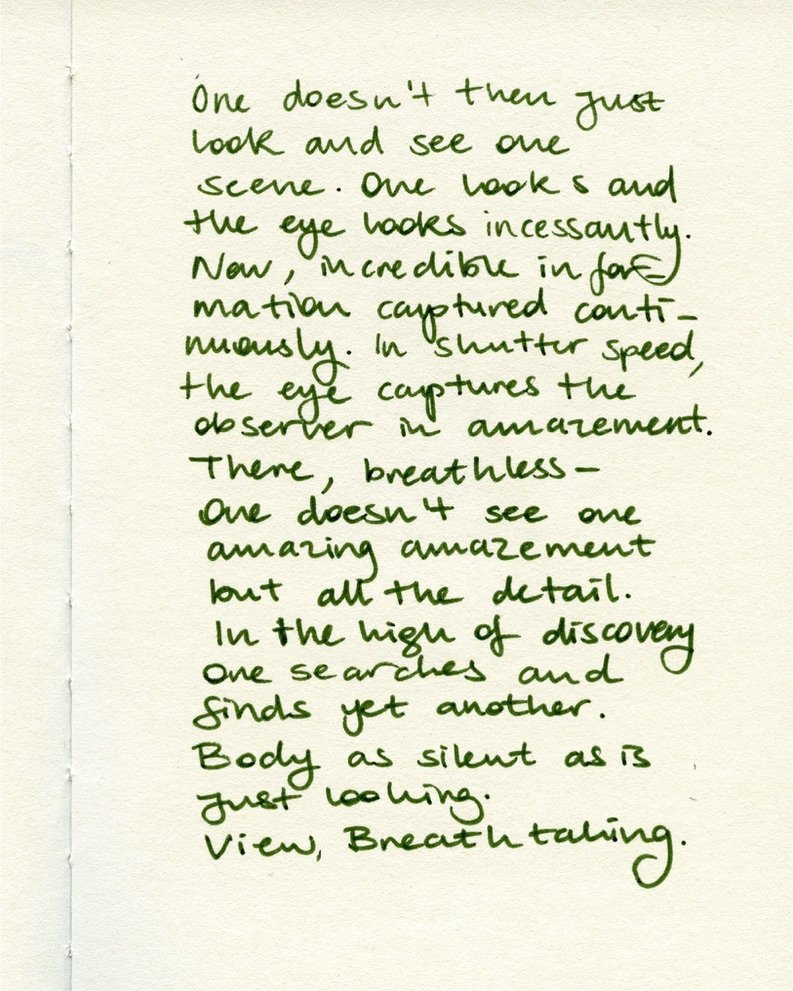 One doesn't then just
look and see one
scene. One looks and
the eye looks incessantly.
Now, incredible infor-
mation captured conti-
nuously. In shutter speed,
the eye captures the
observer in amazement.
There, breathless-
One doesn't see one
amazing amazement
but all the detail.
In the high of discovery
one searches and
finds yet another.
Body as silent as is
just looking.
View, Breathtaking.